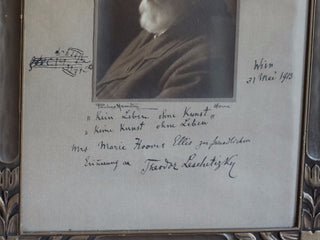 Wien
31 Mai 1913
"Kein Leben ohne Kunst"
"Keine Kunst ohne Leben"
Mrs. Marie Hoover Ellis zur freundlichen
Erinnerung an Theodor Leschetizky